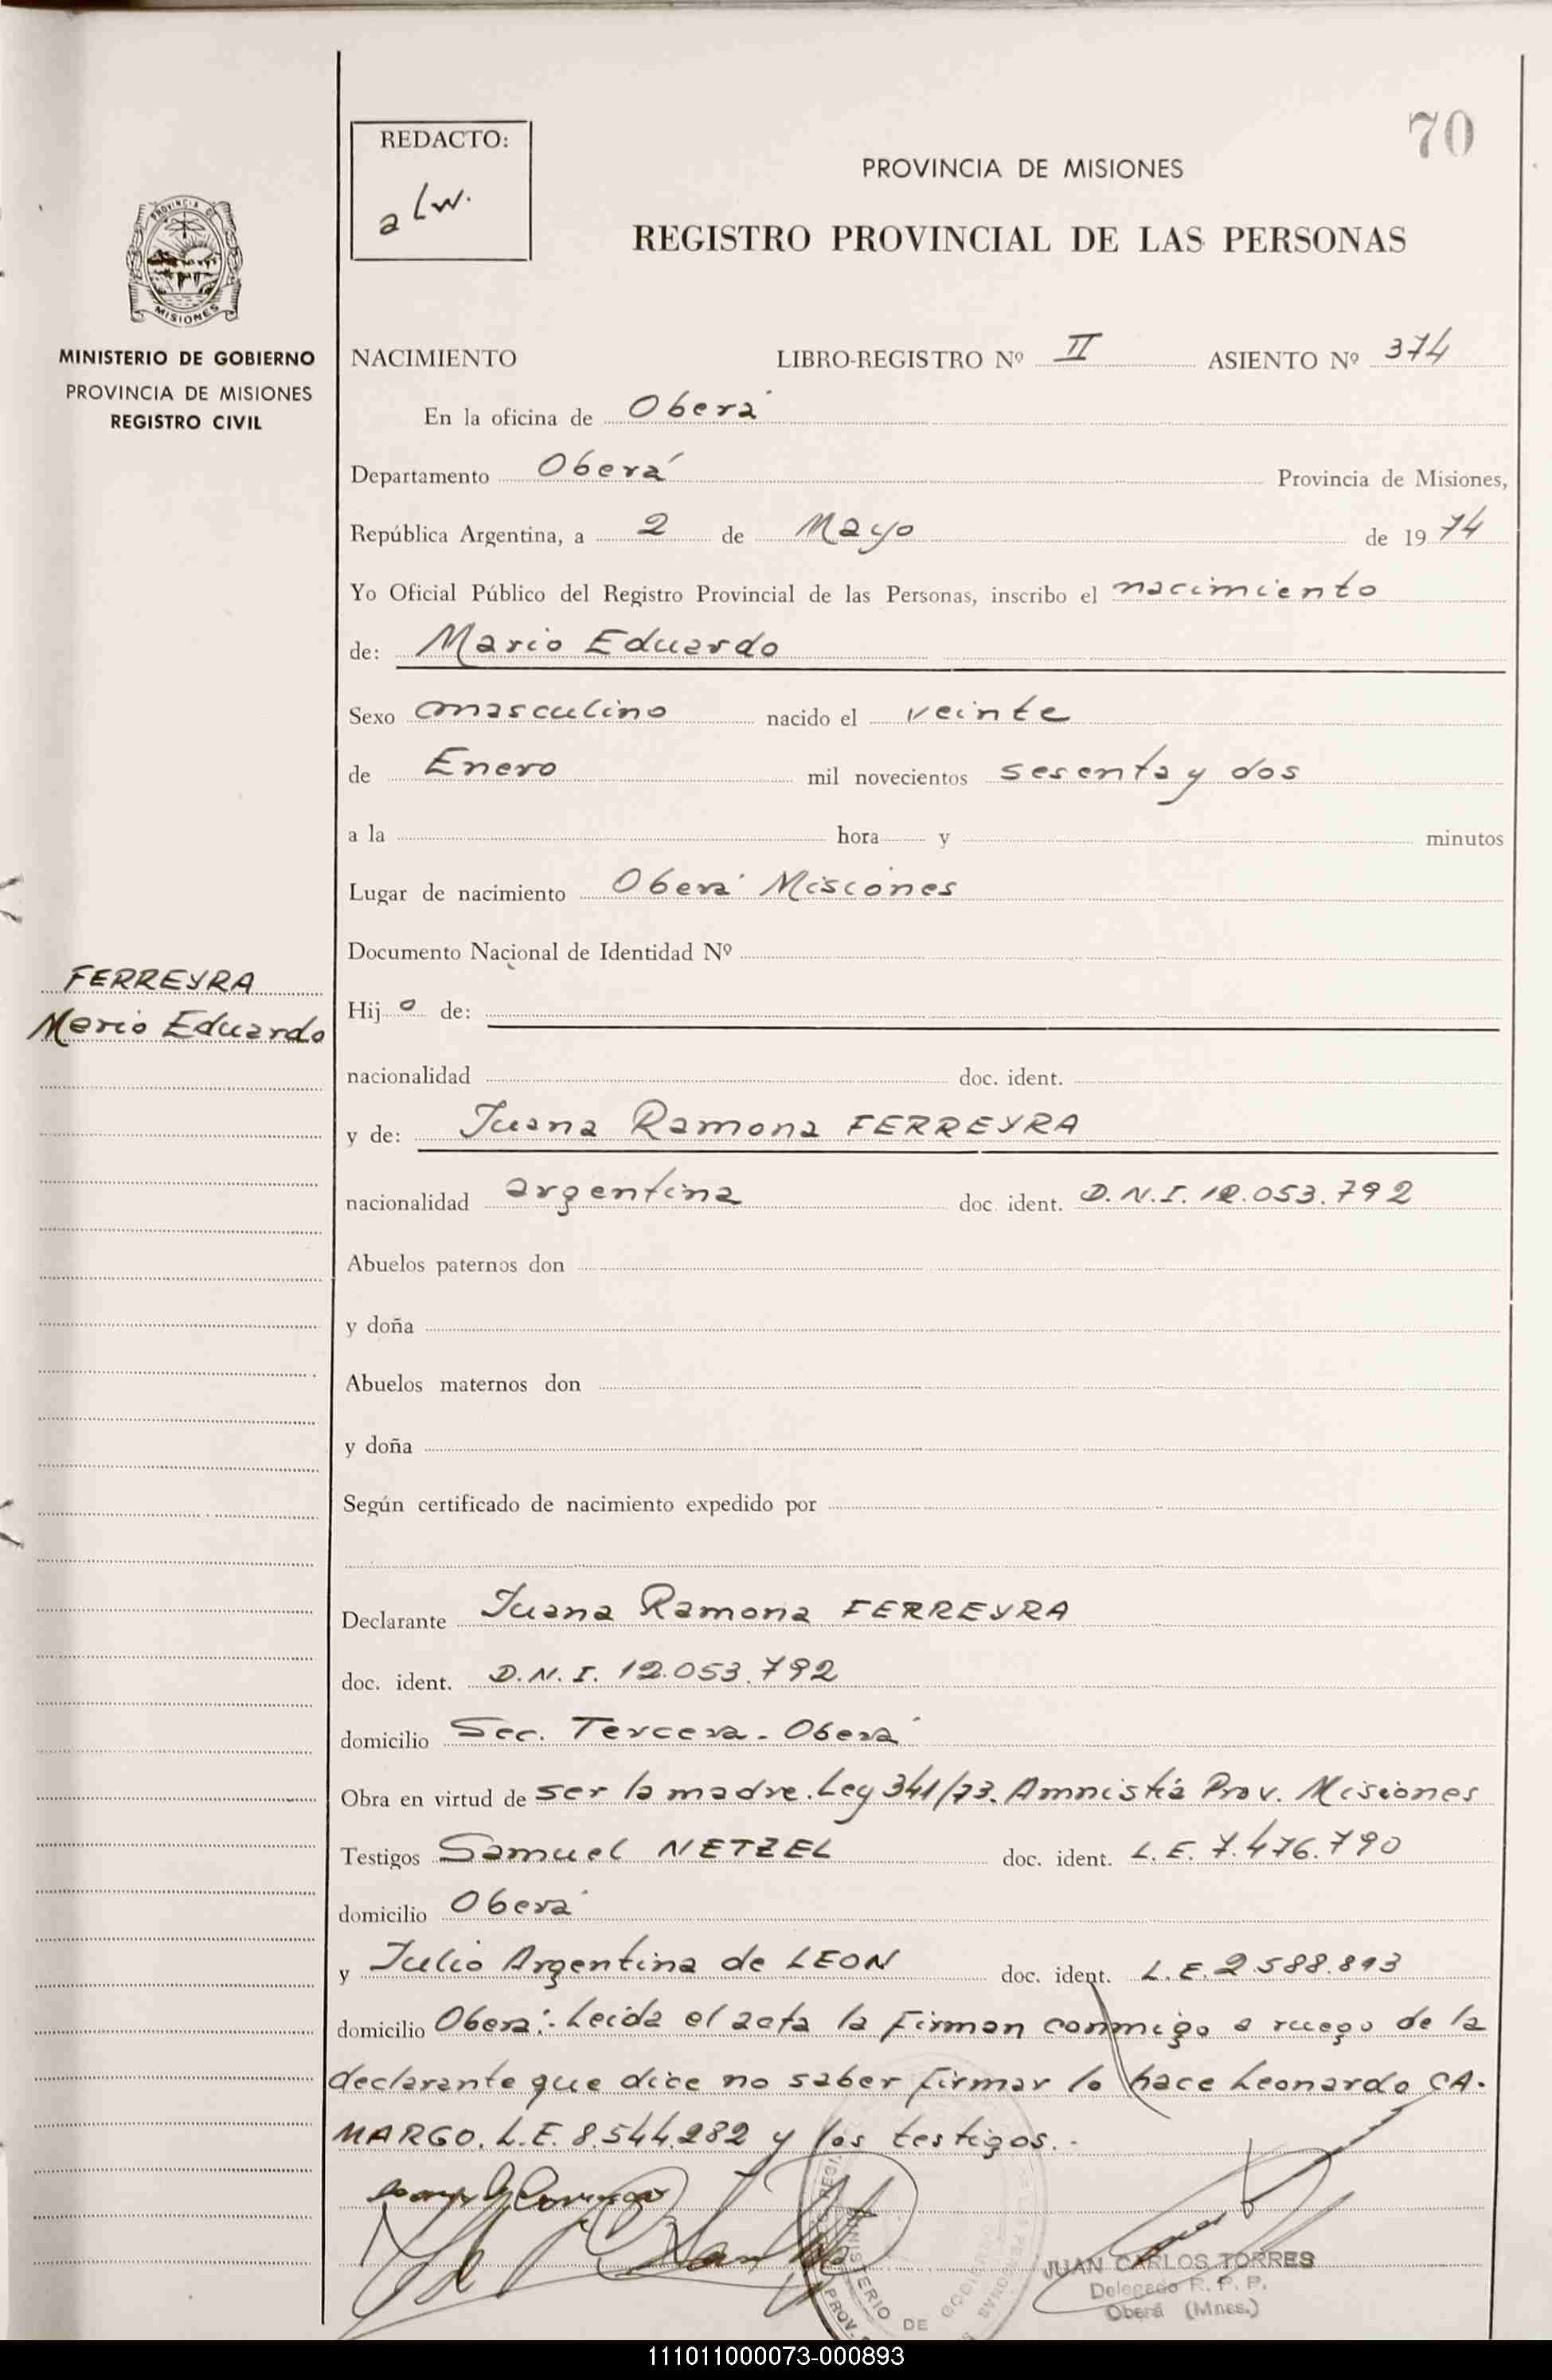 70
REDACTO:
PROVINCIA DE MISIONES
REGISTRO PROVINCIAL DE LAS PERSONAS
PROVINCIA DE
MISIONES
MINISTERIO DE GOBIERNO
PROVINCIA DE MISIONES
REGISTRO CIVIL
FERREYRA
Mario Eduardo
NACIMIENTO LIBRO-REGISTRO Nº II ASIENTO Nº 374
En la oficina de Oberá
Departamento Oberá Provincia de Misiones,
República Argentina, a 2 de Mayo de 1974
Yo Oficial Público del Registro Provincial de las Personas, inscribo el nacimiento
de: Mario Eduardo
Sexo masculino nacido el veinte
de Enero mil novecientos sesenta y dos
a la hora y minutos
Lugar de nacimiento Oberá Misiones
Documento Nacional de Identidad Nº
Hij o de:
nacionalidad doc. ident.
y de: Juana Ramona FERREYRA
nacionalidad argentina doc. ident. D.N.I. 12.053.792
Abuelos paternos don
y doña
Abuelos maternos don
y doña
Según certificado de nacimiento expedido por
Declarante Juana Ramona FERREYRA
doc. ident. D.N.I. 12.053.792
domicilio Sec. Tercera - Oberá
Obra en virtud de ser la madre. Ley 341/73. Amnistía Prov. Misiones
Testigos Samuel NETZEL doc. ident. L.E. 7.476.790
domicilio Oberá
y Julio Argentina de LEON doc. ident. L.E. 2588.813
domicilio Oberá.- Leída el acta la firman conmigo a ruego de la
declarante que dice no saber firmar lo hace Leonardo CA-
MARGO. L.E. 8.544.282 y los testigos.-
MINISTERIO DE GOBIERNO
PROV.
JUAN CARLOS TORRES
Delegado R. P. P.
Oberá (Mnes.)
111011000073-000893